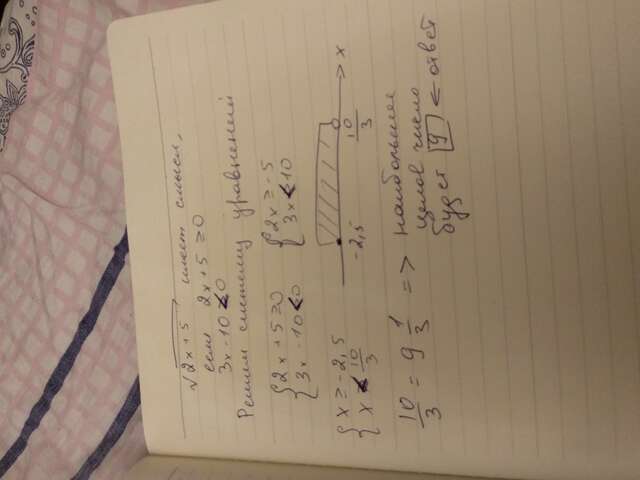 √2x+5 имеет смысл,
если 2x+5 ≥ 0
3x-10 < 0
Решим систему уравнений
{ 2x+5 ≥ 0 { 2x ≥ -5
{ 3x-10 < 0 { 3x < 10
{ x ≥ -2,5
{ x < 10/3
-2,5 10/3 x
10/3 = 9 1/3 => наибольшее
целое число
будет 9 ← ответ